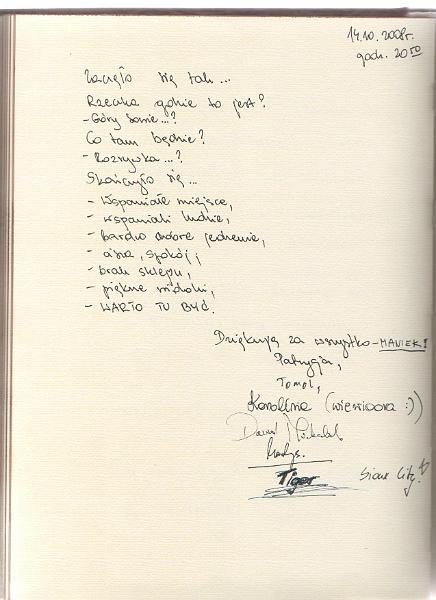 14.10.2008r.
godz. 20⁵⁰
Zaczęło się tak...
Rzeczka gdzie to jest?
- Góry Sowie...?
Co tam będzie?
- Rozrywka...?
Skończyło się...
- Wspaniałe miejsce,
- wspaniali ludzie,
- bardzo dobre jedzenie,
- cisza, spokój,
- brak sklepu,
- piękne widoki,
- WARTO TU BYĆ.
Dziękują za wszystko - MANIEK!
Patrycja,
Karolina (wiewióra :))
Dawid
Tiger
Sioux City!